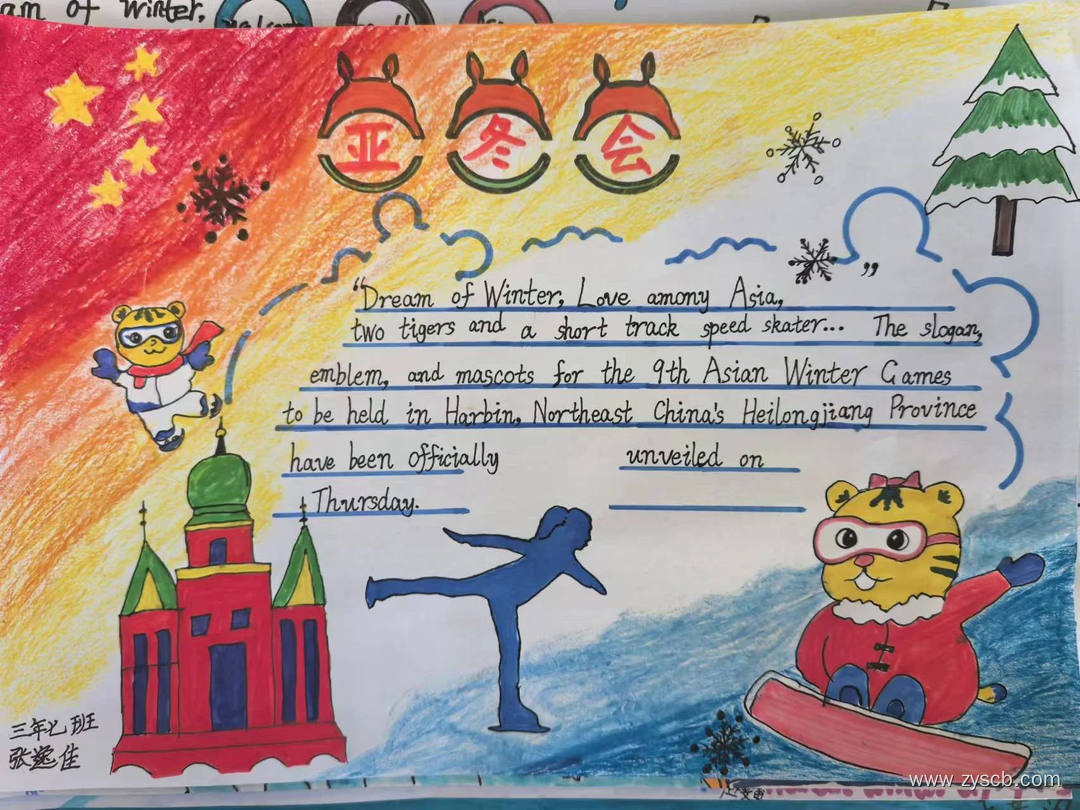 am of Winter,
亚冬会
"Dream of Winter, Love amony Asia,"
two tigers and a short track speed skater... The slogan,
emblem, and mascots for the 9th Asian Winter Games
to be held in Harbin, Northeast China's Heilongjiang Province
have been officially unveiled on
Thursday.
三年七班
张逸佳
www.zyscb.com